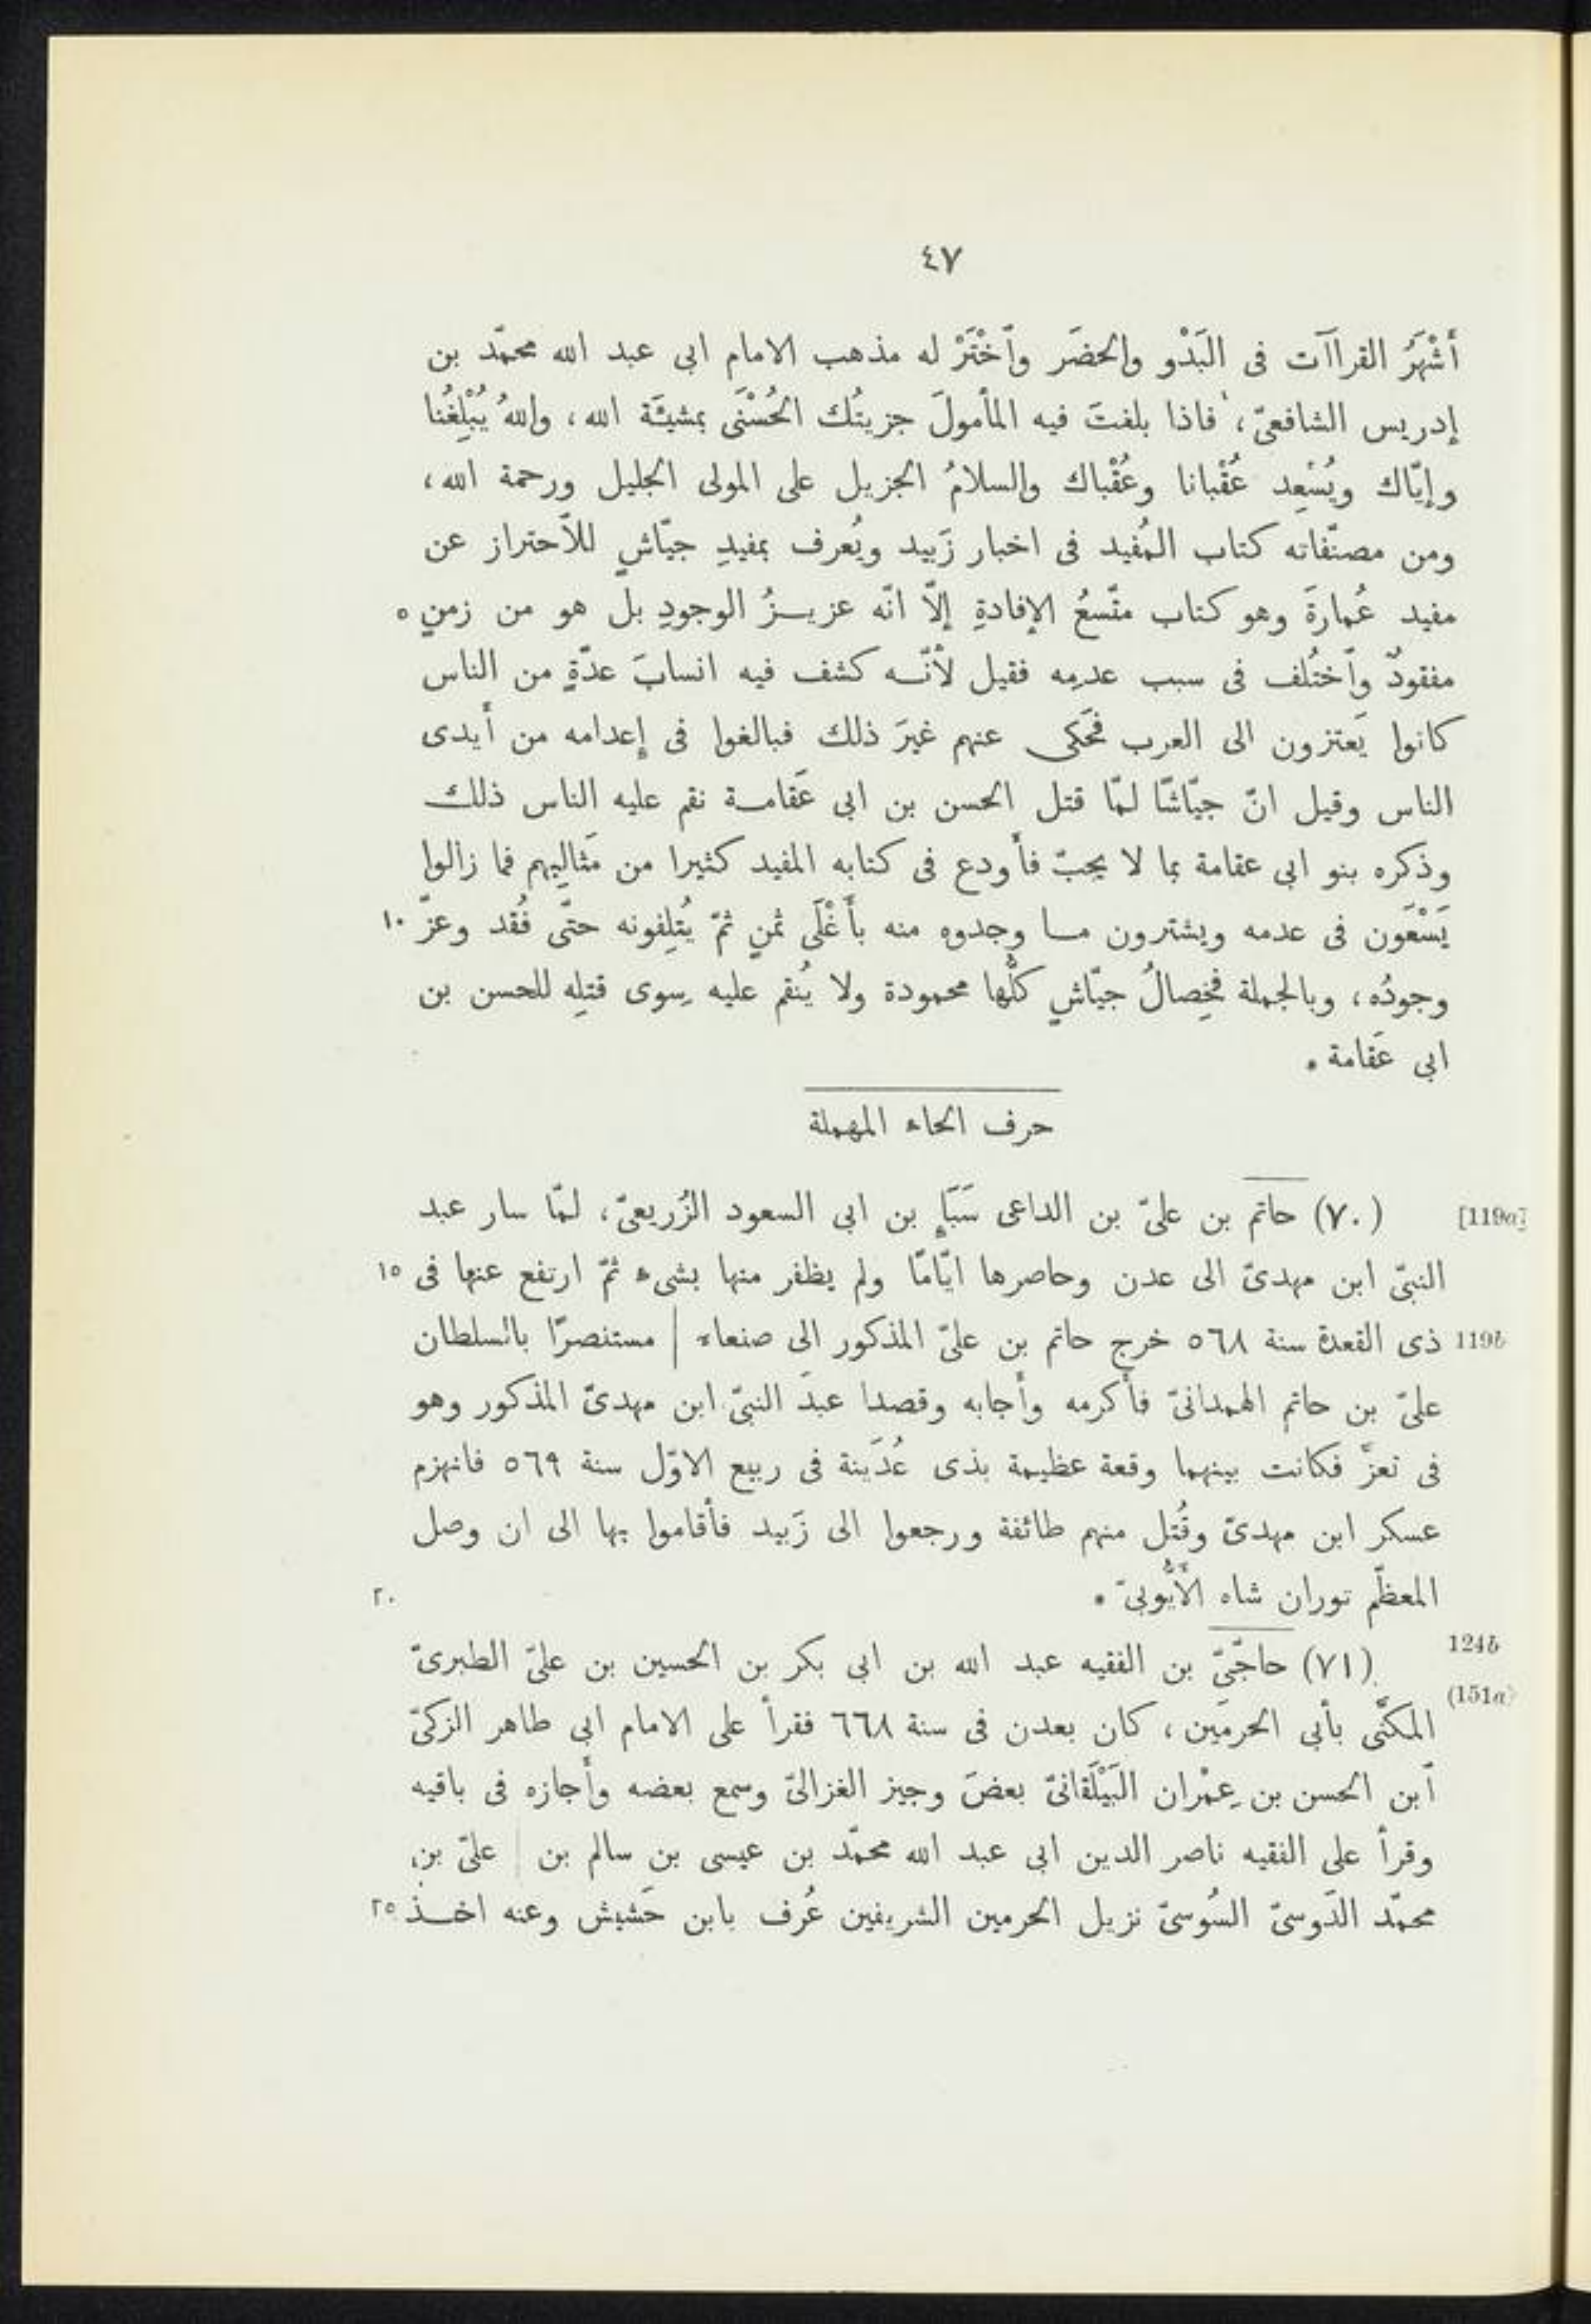 ٤٧
أَشْهَرُ القراآت فى البَدْو والحضَر وٱخْتَرْ له مذهب الامام ابى عبد الله محمّد بن
إدريس الشافعىّ، فاذا بلغتَ فيه المأمولَ جزيتُك الحُسْنَى بمشيّة الله، واللهُ يُبْلِغُنا
وإيّاك ويُسْعِد عُقْبانا وعُقْباك والسلامُ الجزيل على المولى الجليل ورحمة الله،
ومن مصنّفاته كتاب المُفيد فى اخبار زَبيد ويُعرف بمفيدِ جيّاشٍ للٱحتراز عن
مفيد عُمارةَ وهو كتاب متّسعُ الإفادةِ إلّا انّه عزيزُ الوجودِ بل هو من زمنٍ ٥
مفقودٌ وٱختُلف فى سبب عدمِه فقيل لأنّه كشف فيه انسابَ عدّةٍ من الناس
كانوا يَعتزون الى العرب فحَكى عنهم غيرَ ذلك فبالغوا فى إعدامه من أيدى
الناس وقيل انّ جيّاشًا لمّا قتل الحسن بن ابى عَقامة نقم عليه الناس ذلك
وذكره بنو ابى عقامة بما لا يجبّ فأودع فى كتابه المفيد كثيرا من مَثالِبهم فما زالوا
يَسْعَون فى عدمه ويشترون ما وجدوه منه بأَغْلَى ثمنٍ ثمّ يُتلِفونه حتّى فُقد وعزّ ١٠
وجودُه، وبالجملة فخِصالُ جيّاشٍ كلُّها محمودة ولا يُنقم عليه سِوى قتلِه للحسن بن
ابى عَقامة ٠
حرف الحاء المهملة
[119a] (٧٠) حاتم بن علىّ بن الداعى سَبَإٍ بن ابى السعود الزُريعىّ، لمّا سار عبد
النبىّ ابن مهدىّ الى عدن وحاصرها ايّامًا ولم يظفر منها بشىء ثمّ ارتفع عنها فى ١٥
119b ذى القعدة سنة ٥٦٨ خرج حاتم بن علىّ المذكور الى صنعاء | مستنصرًا بالسلطان
علىّ بن حاتم الهمدانىّ فأكرمه وأجابه وقصدا عبدَ النبىّ ابن مهدىّ المذكور وهو
فى تعزّ فكانت بينهما وقعة عظيمة بذى عُدَينة فى ربيع الاوّل سنة ٥٦٩ فانهزم
عسكر ابن مهدىّ وقُتل منهم طائفة ورجعوا الى زَبيد فأقاموا بها الى ان وصل
المعظّم توران شاه الأيُّوبىّ ٠ ٢٠
124b (٧١) حاجّىّ بن الفقيه عبد الله بن ابى بكر بن الحسين بن علىّ الطبرىّ
(151a) المكنَّى بأبى الحرمَين، كان بعدن فى سنة ٦٦٨ فقرأ على الامام ابى طاهر الزكىّ
ٱبن الحسن بن عِمْران البَيْلَقانىّ بعضَ وجيز الغزالىّ وسمع بعضه وأجازه فى باقيه
وقرأ على الفقيه ناصر الدين ابى عبد الله محمّد بن عيسى بن سالم بن | علىّ بن
محمّد الدَوسىّ السُوسىّ نزيل الحرمين الشريفين عُرف بابن حَشيش وعنه اخذ ٢٥